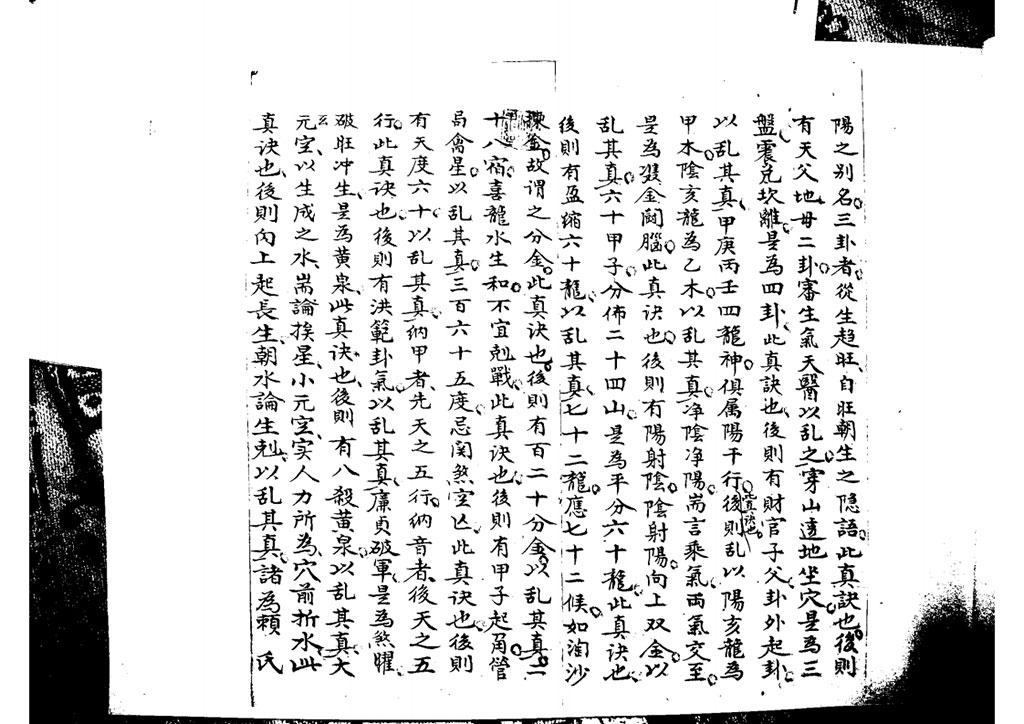 陽之别名三卦者從生趋旺自旺朝生之隐語此真訣也後則
有天父地母二卦審生氣天醫以乱之穿山透地坐穴是為三
盤震兑坎離是為四卦此真訣也後則有財官子父卦外起卦
以乱其真甲庚丙壬四龍神俱属陽干行後則乱以陽亥龍為
甲木陰亥龍為乙木以乱其真净陰净陽耑言乘氣両氣交至
是為雙金閗腦此真訣也後則有陽射陰陰射陽向上双金以
乱其真六十甲子分佈二十四山是為平分六十龍此真訣也
後則有盈缩六十龍以乱其真七十二龍應七十二候如淘沙
揀金故谓之分金此真訣也後則有百二十分金以乱其真二
十八宿喜龍水生和不宜剋戰此真訣也後則有甲子起角管
局禽星以乱其真三百六十五度忌関煞空亡此真訣也後則
有天度六十以乱其真納甲者先天之五行納音者後天之五
行此真訣也後則有洪範卦氣以乱其真廉貞破軍是為煞曜
破旺冲生是為黄泉此真訣也後則有八殺黄泉以乱其真大
元空以生成之水耑論挨星小元空实人力所為穴前折水此
真訣也後則向上起長生朝水論生剋以乱其真諸為賴氏